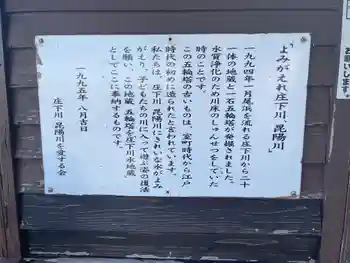 よみがえれ庄下川、昆陽川
一九九四年一月尾浜を流れる庄下川から二十
一体の地蔵と一石五輪塔が発掘されました。
水質浄化のため川床のしゅんせつをしていた
時のことです。
この五輪塔の古いものは、室町時代から江戸
時代の初めに造られたと言われています。
私たちは、庄下川 昆陽川にきれいな水がよみ
がえり、子どもたちの川に入って遊ぶ姿の復活
を願い、この地蔵 五輪塔を庄下川水地蔵
としてここに奉納するものです。
一九九五年 八月吉日
庄下川 昆陽川を愛する会
お願いします